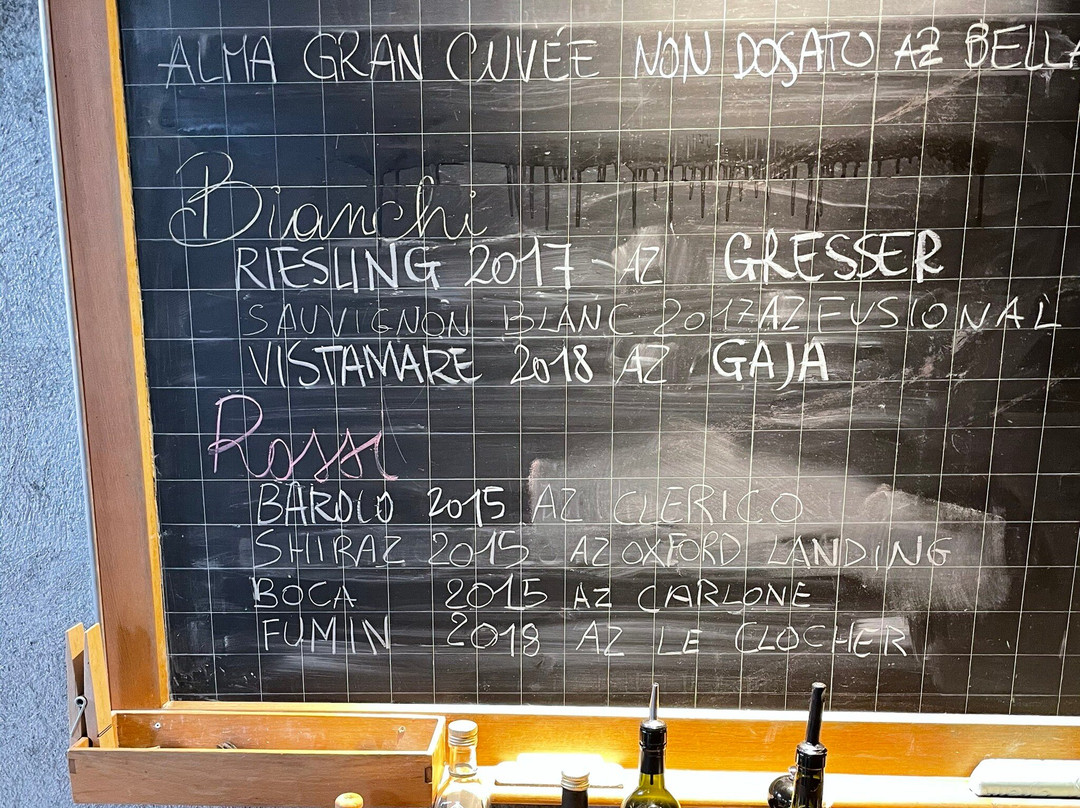 ALMA GRAN CUVÉE NON DOSATO AZ BELLA
Bianchi
RIESLING 2017 AZ GRESSER
SAUVIGNON BLANC 2017 AZ FUSIONAL
VISTAMARE 2018 AZ GAJA
Rossi
BAROLO 2015 AZ CLERICO
SHIRAZ 2015 AZ OXFORD LANDING
BOCA 2015 AZ CARLONE
FUMIN 2018 AZ LE CLOCHER